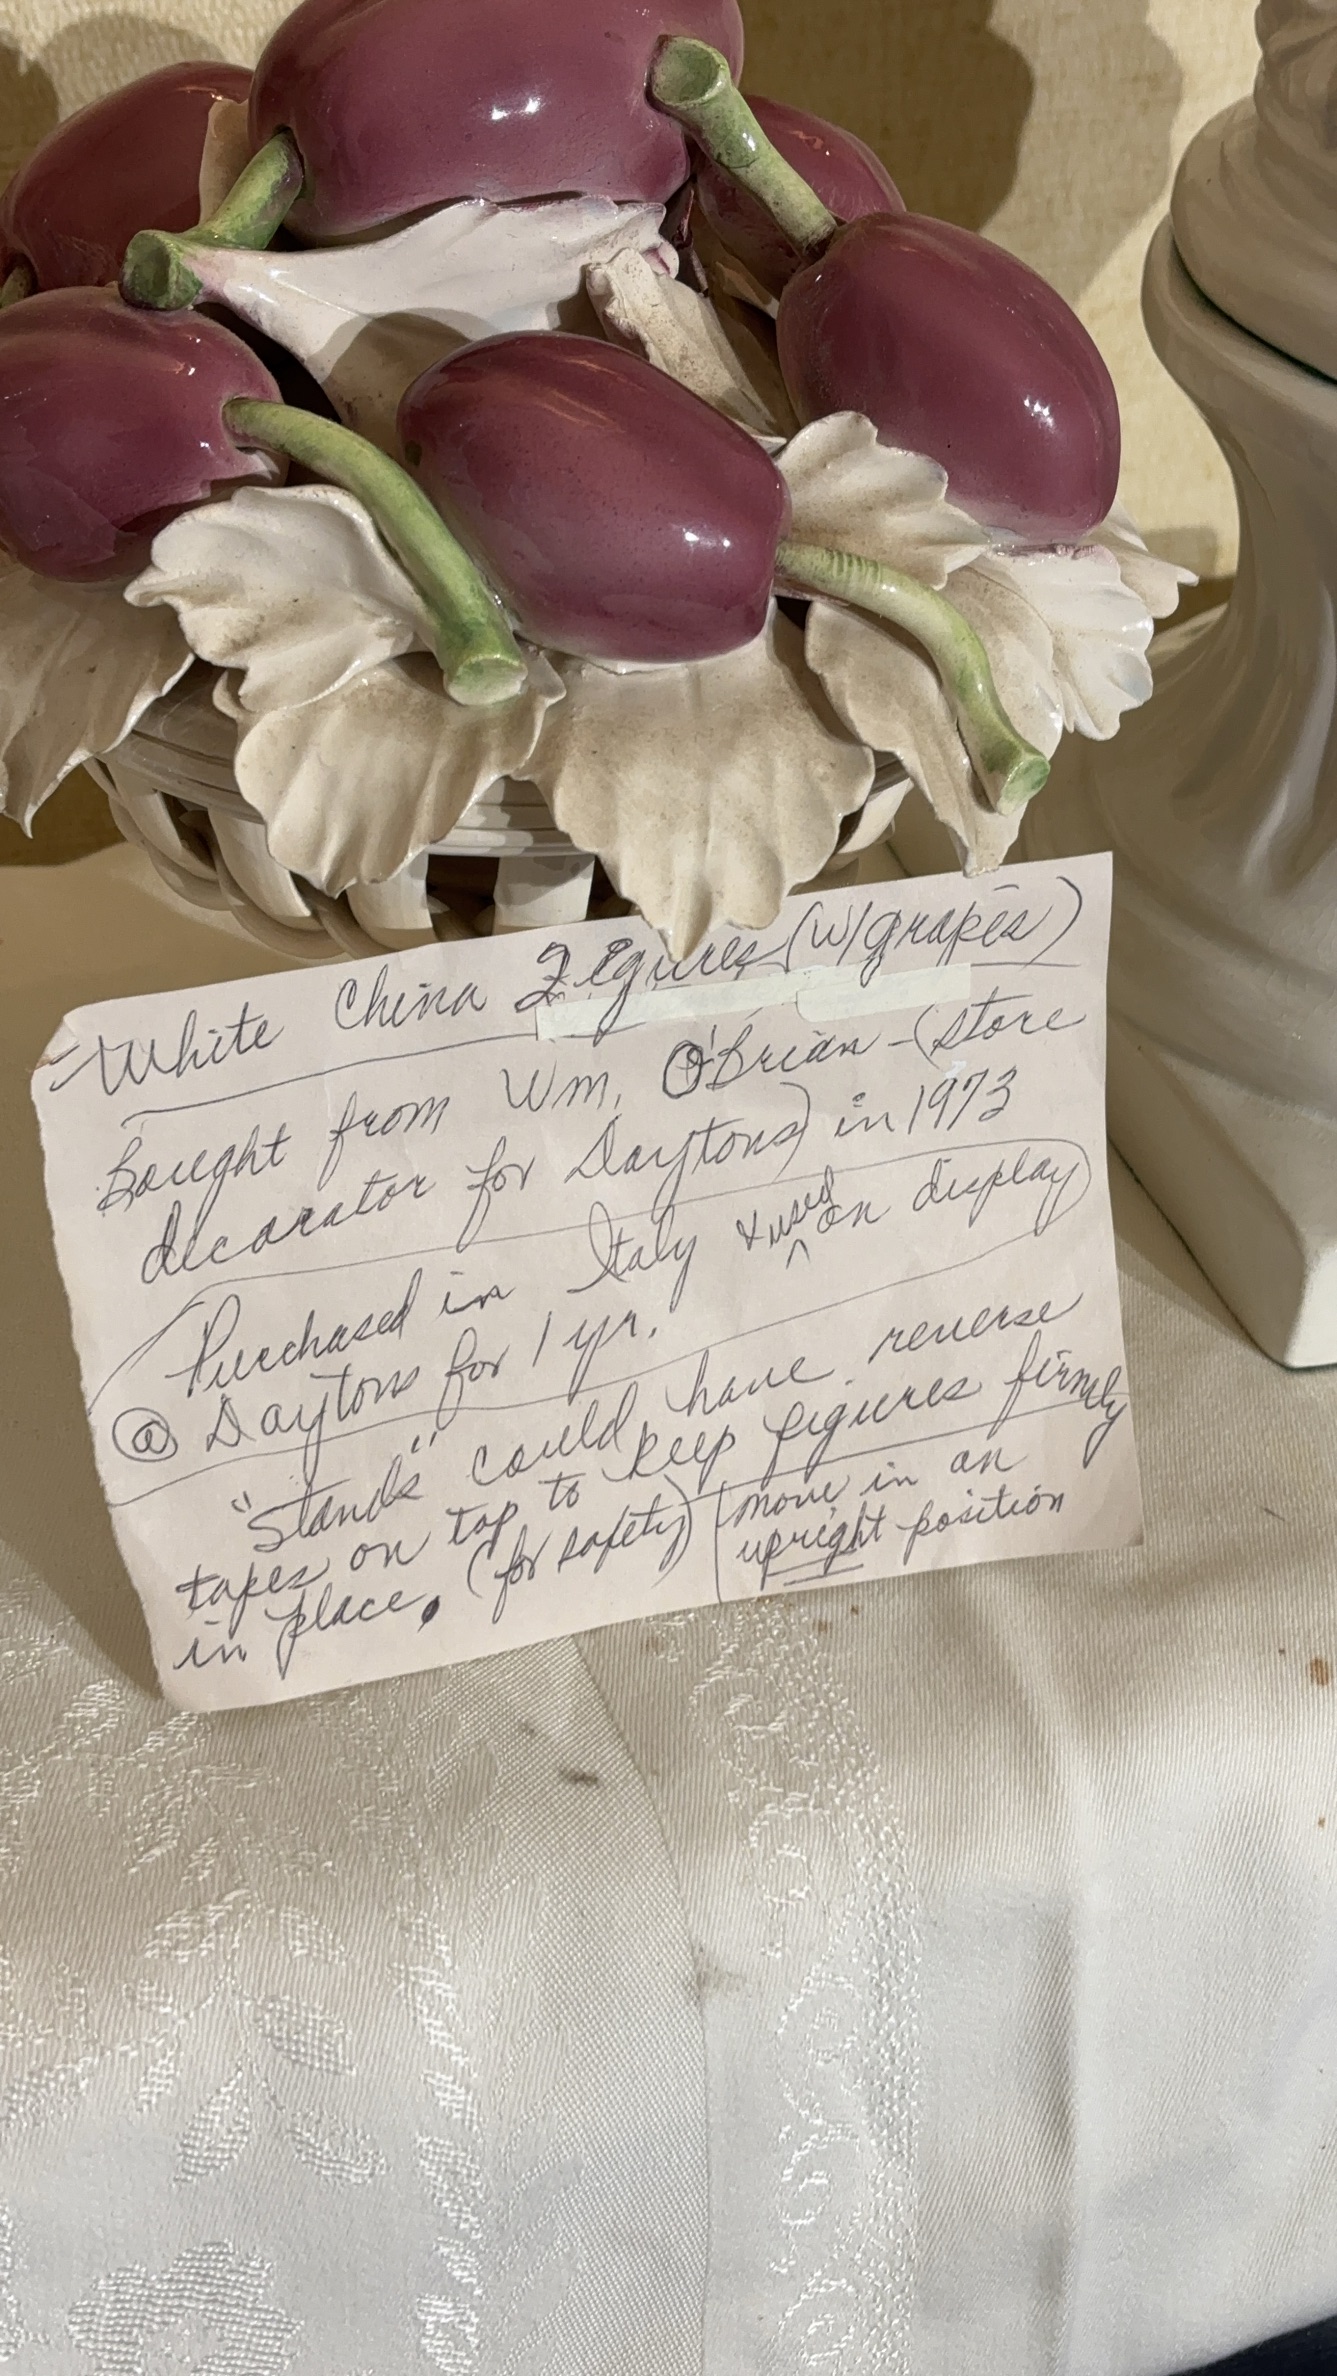 White China Figures (w/grapes)
Bought from Wm. O'Brian - (store
decorator for Daytons) in 1973
Purchased in Italy & used on display
@ Daytons for 1 yr.
"Stands" could have reverse
tapes on top to keep figures firmly
in place. (for safety) (move in an
upright position